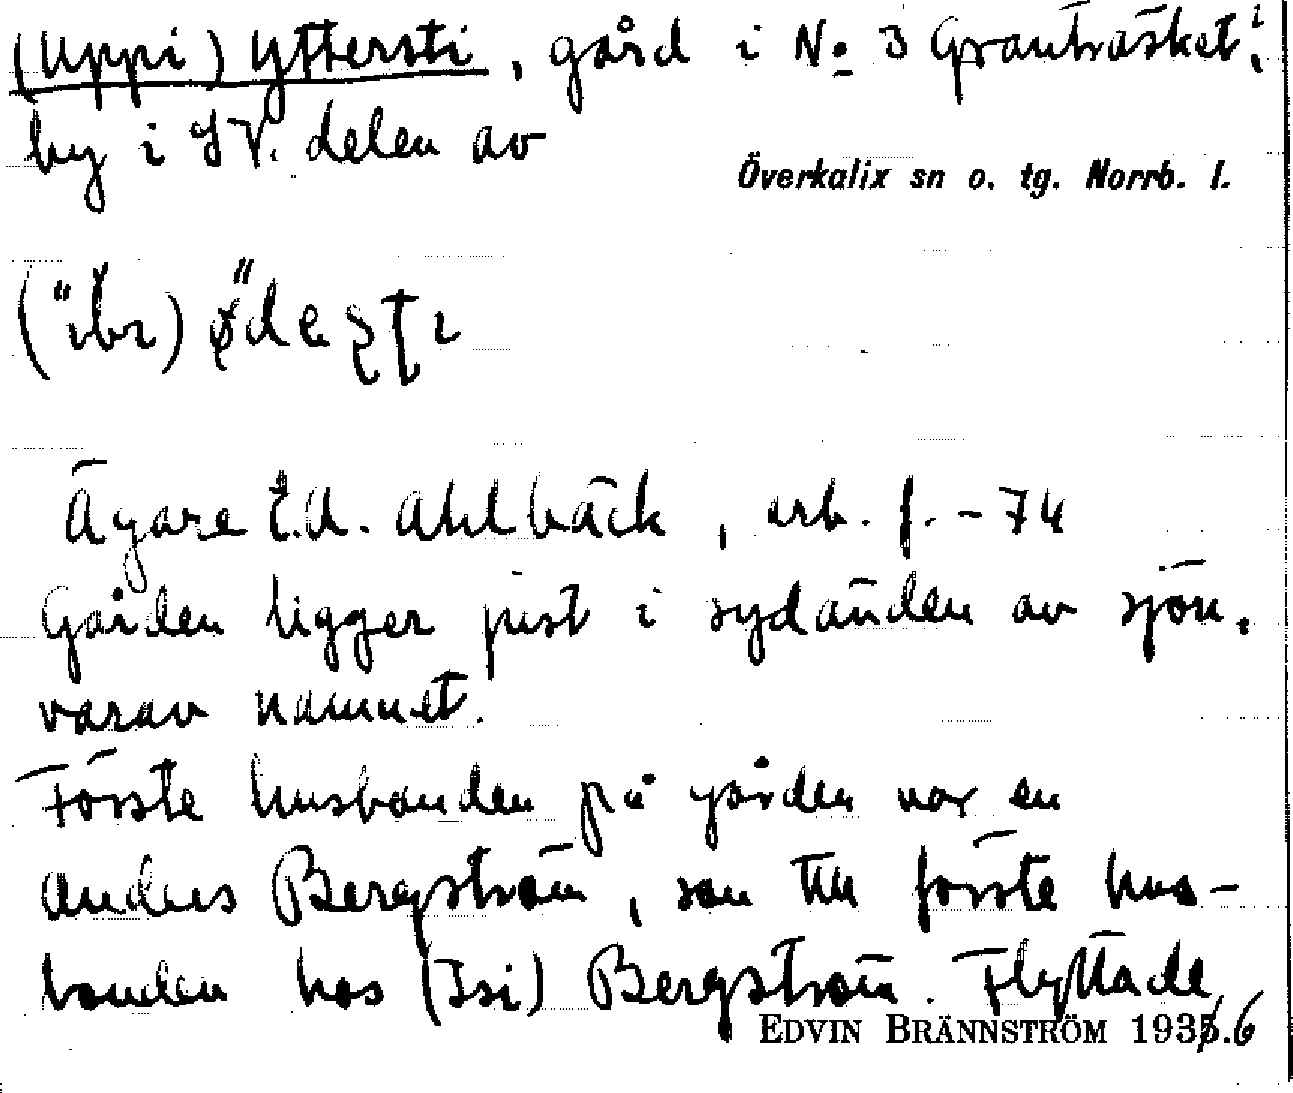 (Uppi) Yttersti, gård i No 3 Granträsket,
by i SV. delen av
Överkalix sn o. tg. Norrb. l.
Ägare E.A. Ahlbäck, arb. f. -74
Gården ligger just i sydänden av sjön,
varav namnet.
Förste husbonden på gården var en
Anders Bergström, son till förste hus-
bonden hos (Isi) Bergström. Flyttade
EDVIN BRÄNNSTRÖM 193.6